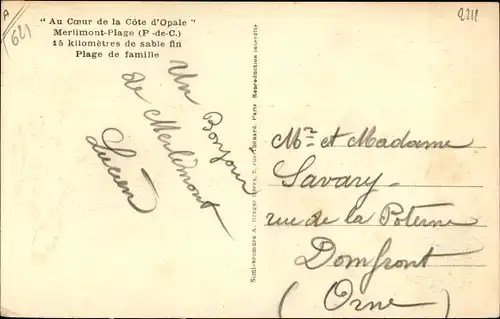 (62)
2211
" Au Cœur de la Côte d'Opale "
Merlimont-Plage (P.-de-C.)
15 kilomètres de sable fin
Plage de famille
Un Bonjour
de Merlimont
Lucien
Reproduction interdite
Mr et Madame
Savary
rue de la Poterne
Domfront
(Orne)